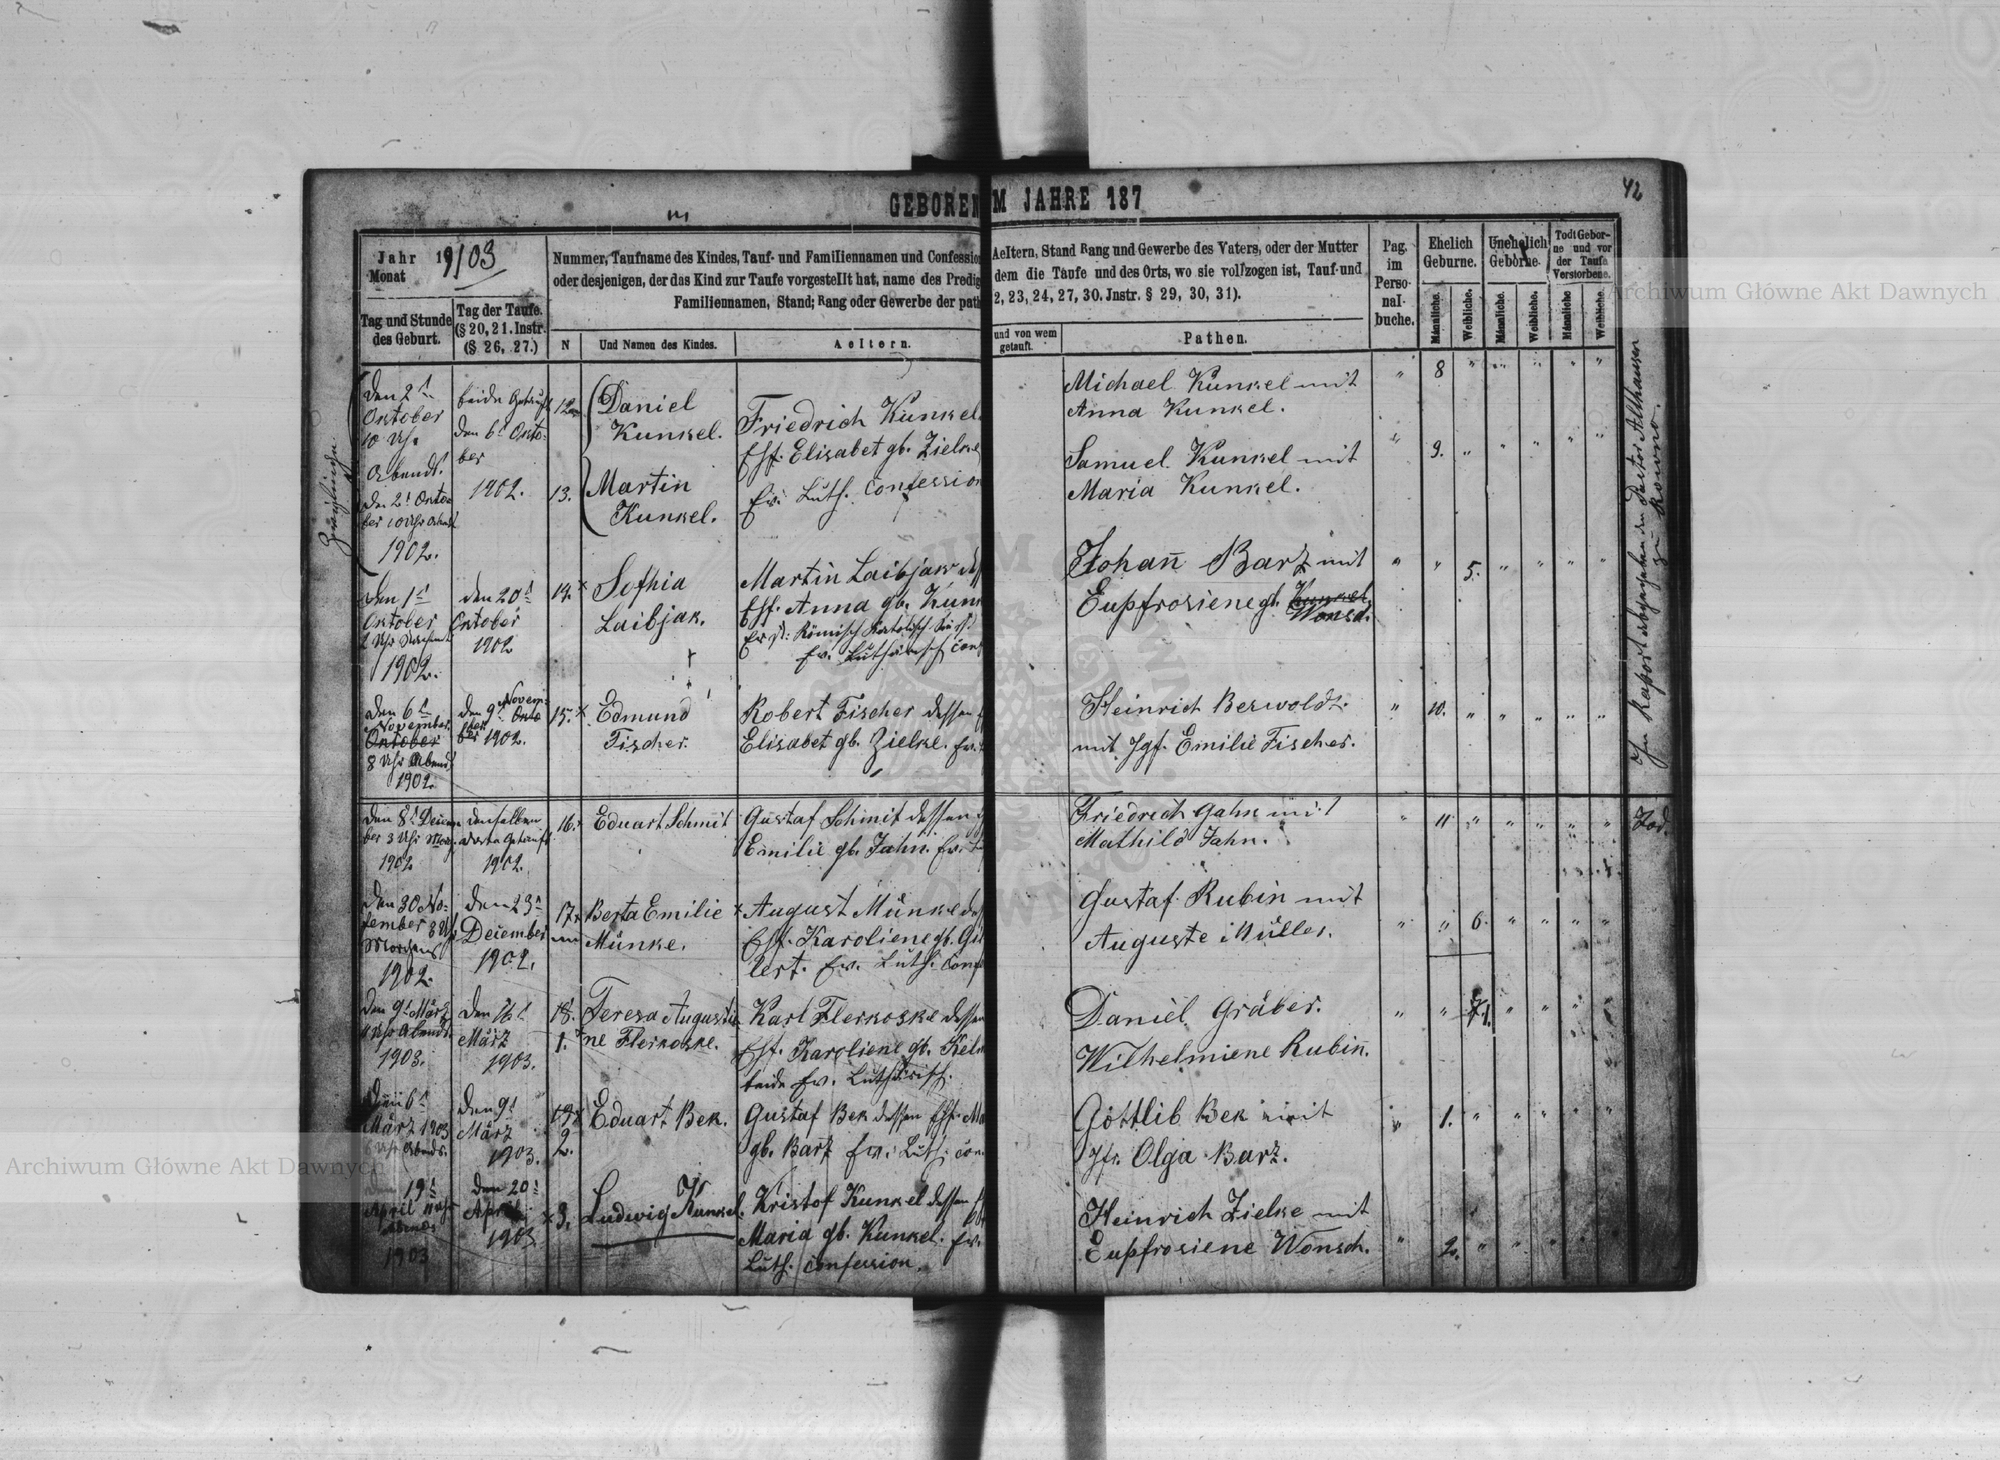 42
GEBOREN
M JAHRE 187
Jahr 1903
Monat
Tag und Stunde
des Geburt.
Tag der Taufe.
(§ 20, 21. Instr.
(§ 26, 27.)
Nummer, Taufname des Kindes, Tauf- und Familiennamen und Confession
oder desjenigen, der das Kind zur Taufe vorgestellt hat, name des Predig
Familiennamen, Stand; Rang oder Gewerbe der path
N
Und Namen des Kindes.
Aeltern.
Aeltern, Stand Rang und Gewerbe des Vaters, oder der Mutter
dem die Taufe und des Orts, wo sie vollzogen ist, Tauf-und
2, 23, 24, 27, 30. Jnstr. § 29, 30, 31).
und von wem
getauft.
Pathen.
Pag.
im
Perso-
nal-
buche.
Ehelich
Geburne.
Unehelich
Geborne.
Todt Gebor-
ne und vor
der Taufe
Verstorbene.
Männliche.
Weibliche.
Männliche.
Weibliche.
Männliche
Weibliche.
Zwillinge
den 2t
Oktober
10 Uhr
Abends.
den 2t Okto
ber 10 Uhr Abends
1902.
beide Getauft
den 6t Okto-
ber
1902.
12
Daniel
Kunkel.
13.
Martin
Kunkel.
Friedrich Kunkel
Ehf. Elisabet gb. Zielke
Ev. Luth. Confession
Michael Kunkel mit
Anna Kunkel.
" 8 " " " " "
Samuel Kunkel mit
Maria Kunkel.
" 9. " " " " "
den 1t
Oktober
1902.
den 20t
Oktober
1902
14. x
Sofhia
Laibjak.
Martin Laibjak
Ehf. Anna gb. Kunk
Er ist Römisch Katolisch
Ev. Lutherisch Conf
Johann Barz mit
Eupfrosiene gb. Kunkel
Wonsch.
" " 5. " " " "
den 6t
November
Oktober
8 Uhr Abends
1902.
den 9t Novem
ber Okto
ber 1902.
15. x
Edmund
Fischer.
Robert Fischer dessen
Elisabet gb. Zielke. Ev.
Heinrich Berwoldt.
mit Jgf. Emilie Fischer.
" 10. " " " " "
Im Raport abgegeben den Pastor Althausen
zu Kowno.
den 8t Decem
ber 3 Uhr Morg.
1902
denselben
Getauft
1902.
16.
Eduart Schmit
Gustaf Schmit dessen
Emilie gb. Jahn. Ev.
Friedrich Jahn mit
Mathild Jahn.
" 11 " " " " "
Tod.
den 30 No-
fember 8 Uhr
Morgens
1902.
den 23t
December
1902.
17.
Berta Emilie
Münke.
August Münke
Ehf. Karoliene gb. Gil
lert. Ev. Luth. Conf
Gustaf Rubin mit
Auguste Müller.
" " 6. " " " "
den 9t März
Uhr Abends
1903.
den 16t
März
1903.
18.
1.
Teresa Augustie
ne Flerkoske.
Karl Flerkoske dessen
Ehf. Karoliene gb. Keln
beide Ev. Lutherisch.
Daniel Gräber.
Wilhelmiene Rubin.
" " 1. " " " "
den 6t
März 1903
6 Uhr Abends.
den 9t
März
1903.
19.
2.
Eduart Bek.
Gustaf Bek dessen Ehf. Ma
gb. Barz Ev. Luth. con
Gottlib Bek mit
Jfr. Olga Barz.
" 1. " " " " "
den 19t
April 11 Uhr
Abends
1903
den 20t
April
1903
x 3.
Ludwig Kunkel.
Kristof Kunkel dessen
Maria gb. Kunkel. Ev.
Luth. Confession.
Heinrich Zielke mit
Eupfrosiene Wonsch.
" 2. " " " " "
Archiwum Główne Akt Dawnych
Archiwum Główne Akt Dawnych